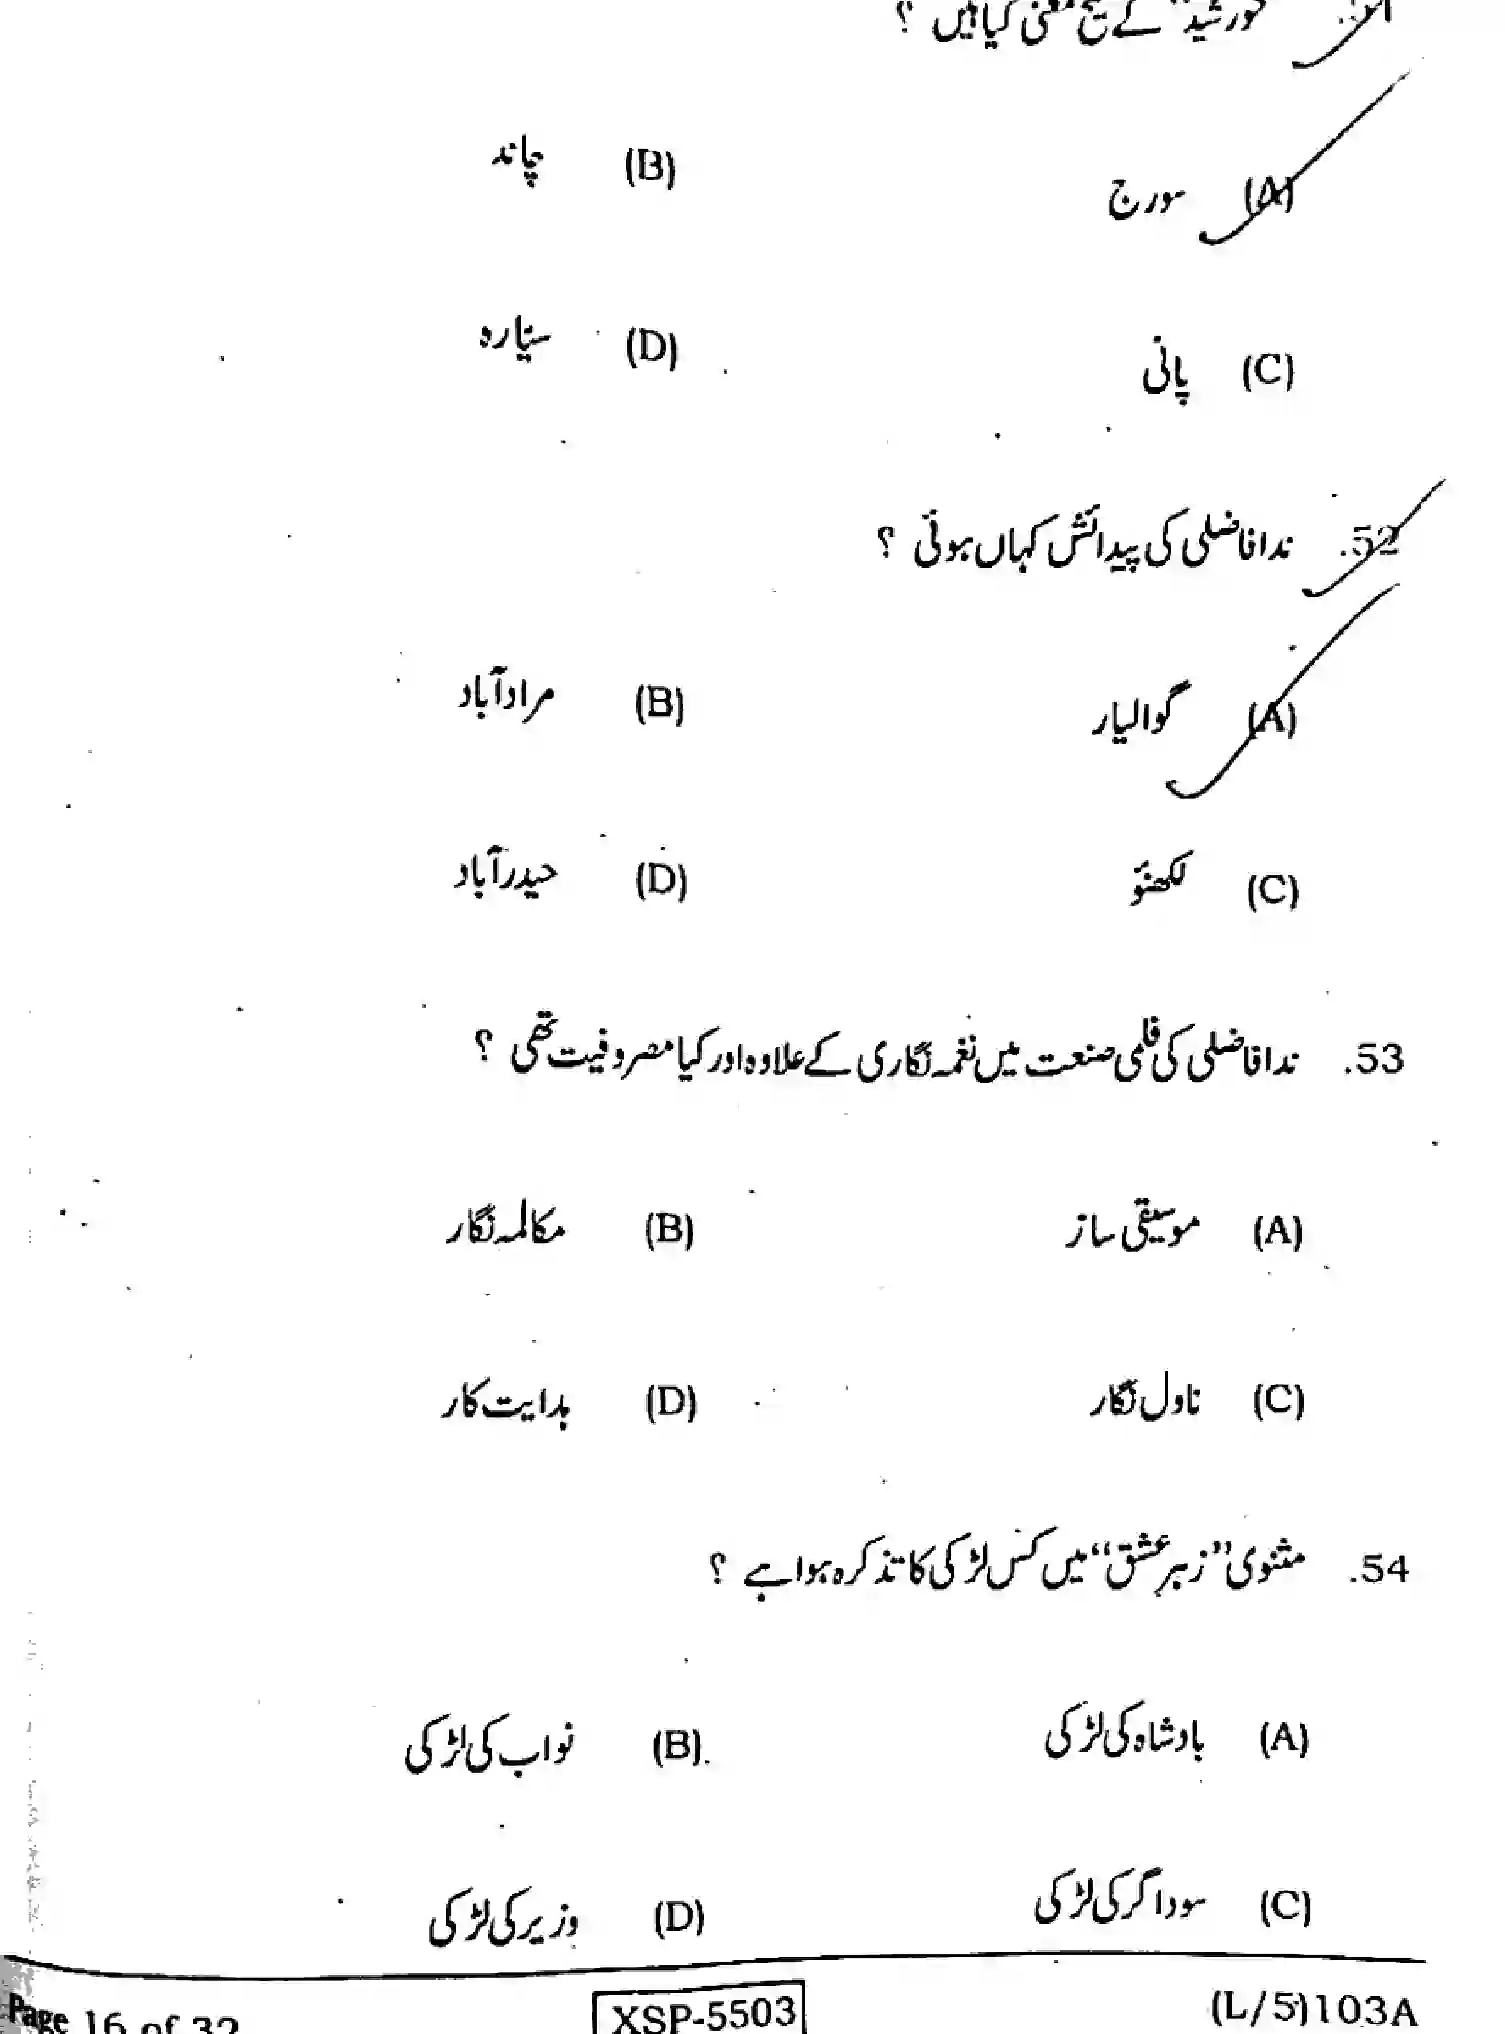 خورشید" کے صحیح معنی کیا ہیں ؟
(A) سورج (B) چاند
(C) پانی (D) سیّارہ
52. ندا فاضلی کی پیدائش کہاں ہوئی ؟
(A) گوالیار (B) مرادآباد
(C) لکھنؤ (D) حیدرآباد
53. ندا فاضلی کی فلمی صنعت میں نغمہ نگاری کے علاوہ اور کیا مصروفیت تھی ؟
(A) موسیقی ساز (B) مکالمہ نگار
(C) ناول نگار (D) ہدایت کار
54. مثنوی "زہر عشق" میں کس لڑکی کا تذکرہ ہوا ہے ؟
(A) بادشاہ کی لڑکی (B) نواب کی لڑکی
(C) سوداگر کی لڑکی (D) وزیر کی لڑکی
Page 16 of 32 XSP-5503 (L/5)103A